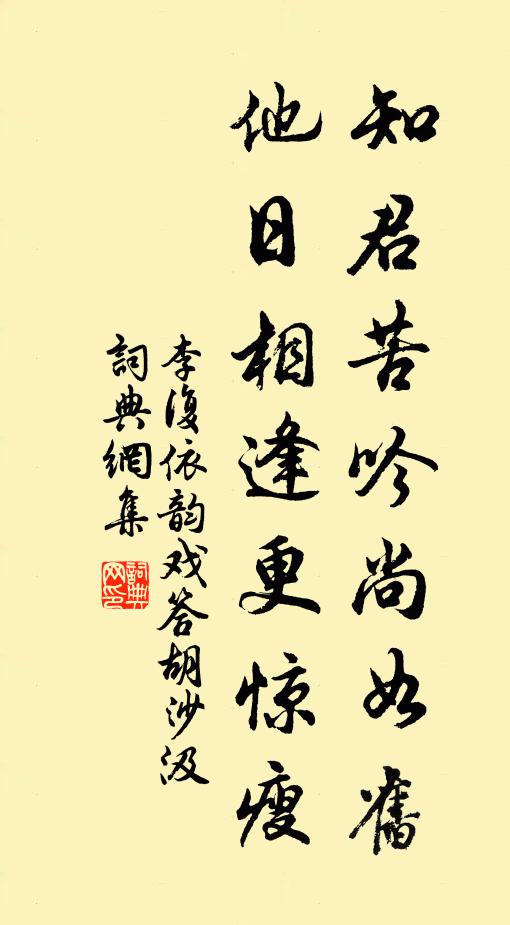 知君苦吟尚如舊
他日相逢更惊瘦
李復依韵戏答胡沙汲
詞典網集
詞典网印